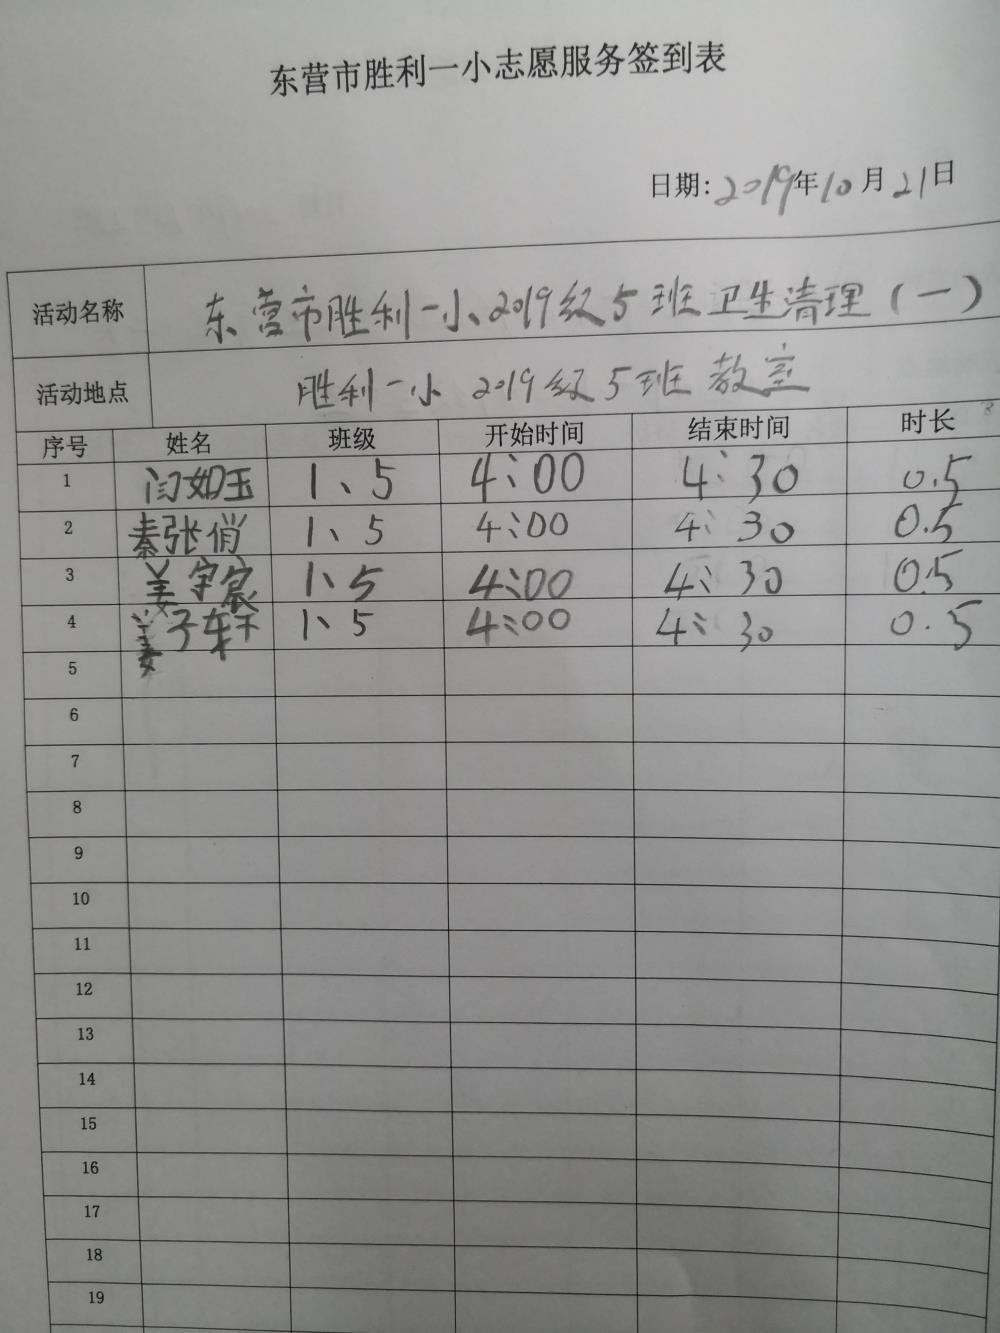 东营市胜利一小志愿服务签到表
日期:2019年10月21日
活动名称 东营市胜利一小2019级5班卫生清理(一)
活动地点 胜利一小2019级5班教室
序号 姓名 班级 开始时间 结束时间 时长
1 闫如玉 1、5 4:00 4:30 0.5
2 秦张俏 1、5 4:00 4:30 0.5
3 姜宇宸 1、5 4:00 4:30 0.5
4 姜子轩 1、5 4:00 4:30 0.5
5
6
7
8
9
10
11
12
13
14
15
16
17
18
19